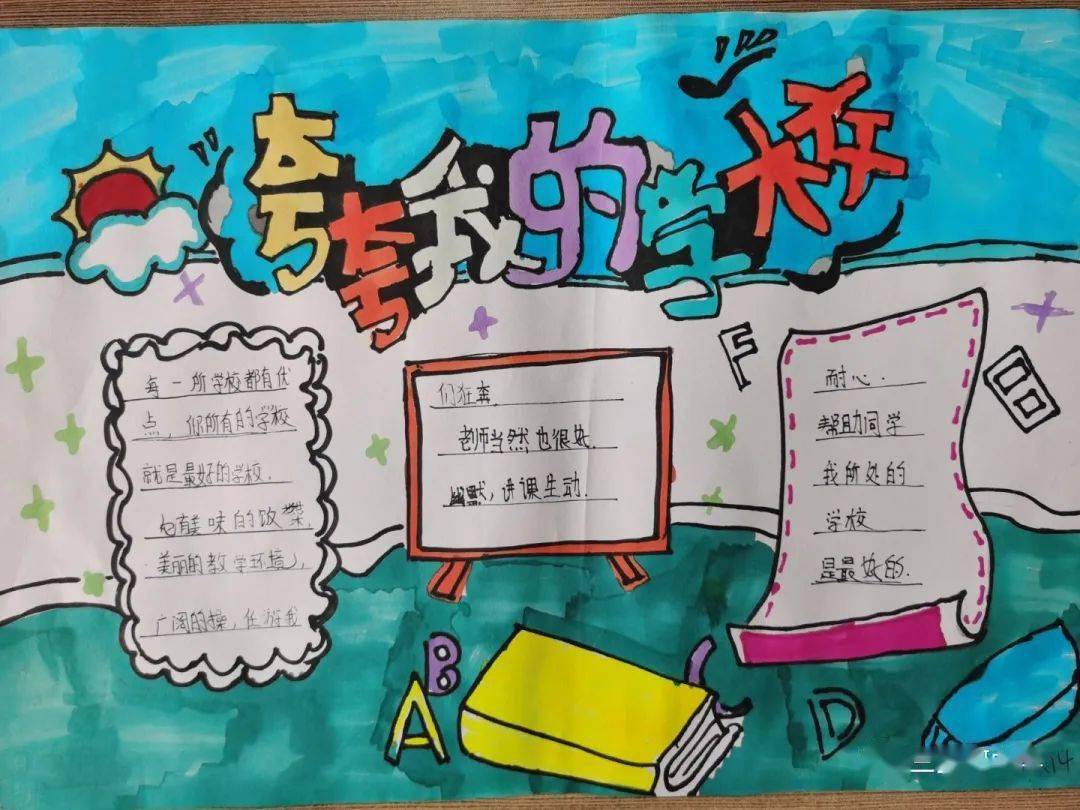 夸夸我的学校
每一所学校都有优
点，你所有的学校
就是最好的学校.
有美味的饭菜,
美丽的教学环境,
广阔的操，任游我
们狂奔,
老师当然也很好.
幽默，讲课生动.
F
耐心.
帮助同学
我所处的
学校
是最好的.
A
B
C
D
14